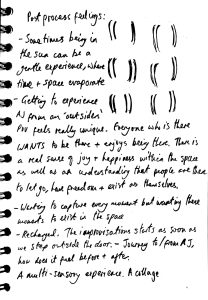 Post process feelings:
- Sometimes being in
the sun can be a
gentle experience, where
time + space evaporate
- Getting to experience
AJ from an 'outsiders'
POV feels really unique. Everyone who is there
WANTS to be there + enjoys being there. There is
a real sense of joy + happiness within the space
as well as an understanding that people are there
to let go, have freedom + exist as themselves.
- Wanting to capture every moment but wanting these
moments to exist in the space
- Recharged. The improvisations starts as soon as
we stop outside the door. - Journey to/from AJ,
how does it feel before + after.
A multi-sensory experience. A collage